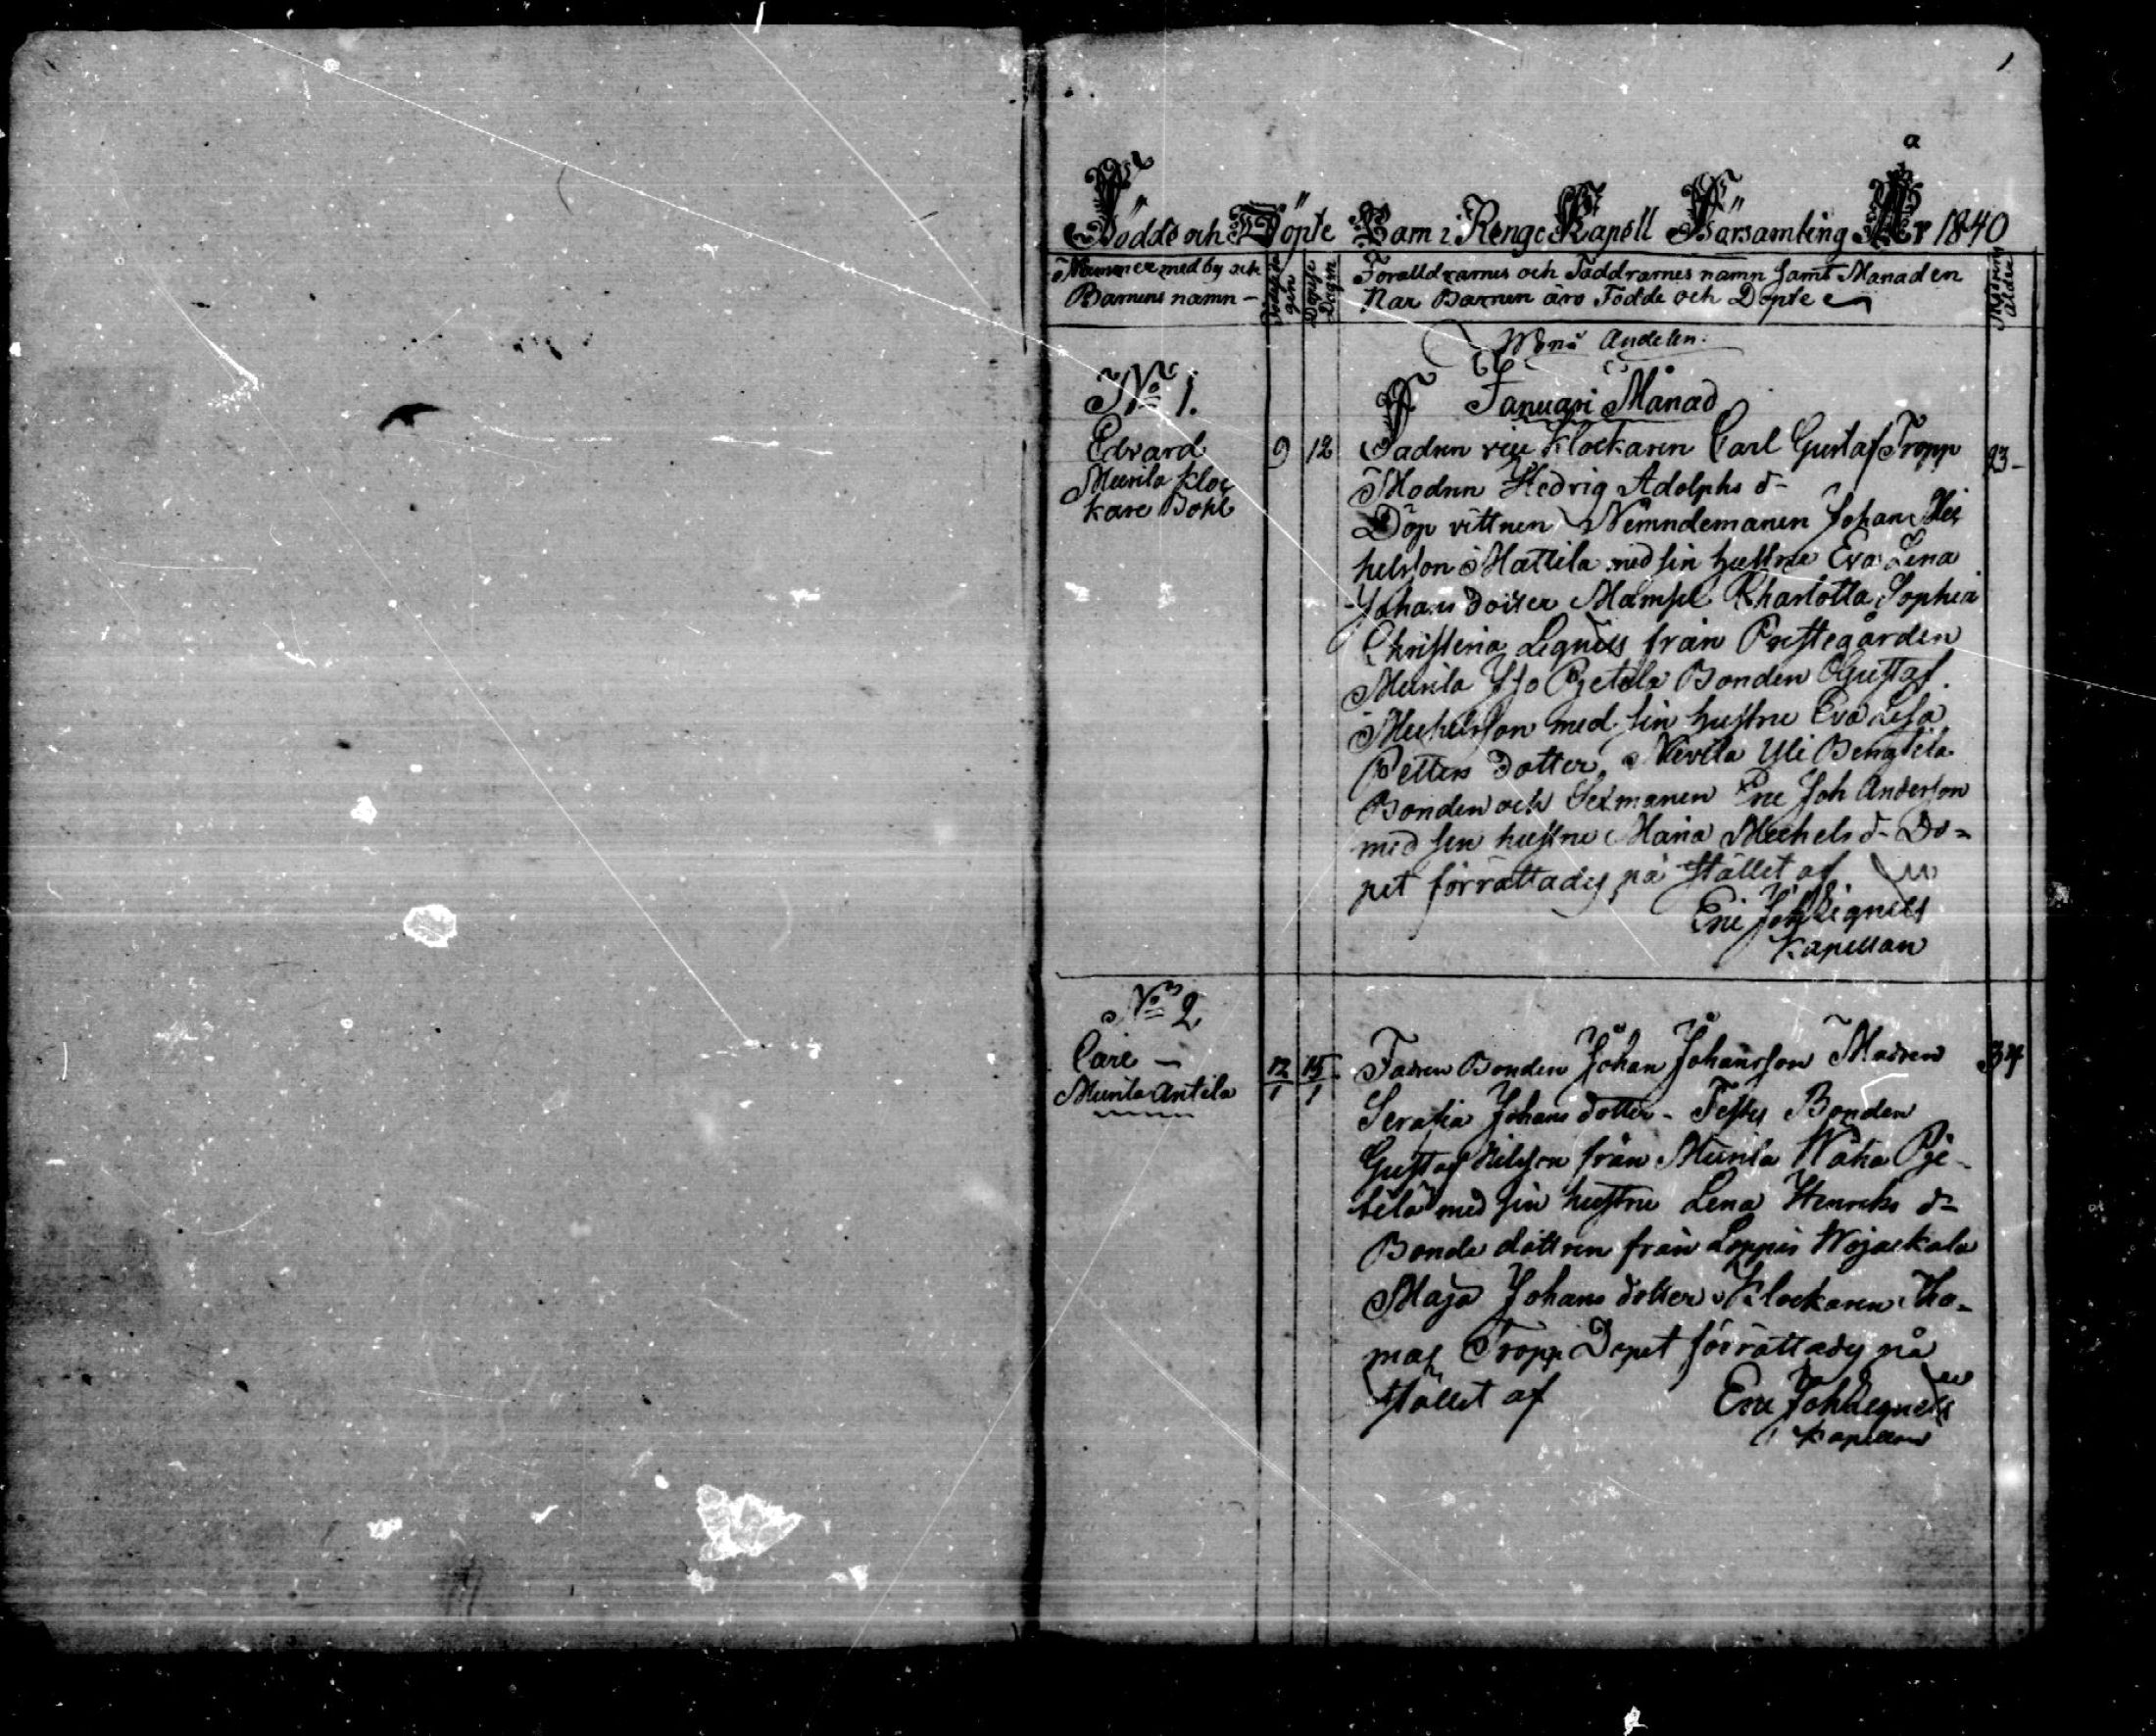 1
a
Födde och Döpte Barn i Renge Kapell Församling År 1840
Nummer med by och
Barnens namn -
Födelse da
gen
Döpelse
Dagen
Föralldrarnes och Faddrarnes namn samt Månaden
När Barnen äro Födde och Döpte
Modrens
ålder
Wånå Andelen.
Januari Månad
No 1.
Edvard
Munila Kloc
kare Bohl
9
12
23-
Fadren vice Klockaren Carl Gustaf Tropp
Modren Hedvig Adolphs d-
Döp vittnen Nemndemanen Johan Mic
helsson Mattila med sin hustru Eva Lena
Johans dotter Mamsel Charlotta Sophia
Christina Legnells från Prestegården
Munila Iso Pjetola Bonden Gustaf
Michelsson med sin hustru Eva Lisa
Petters dotter Nevila Yli Bengtila
Bonden och Sexmanen Eric Joh Anderson
med sin hustru Maria Michels d- Do=
pet förrättades på stället af
Eric Joh Legnells
Kapellan
No 2
Carl -
Munila Antila
12
1
15
1
34
Fadren Bonden Johan Johansson Madren
Serafia Johans dotter - Testes Bonden
Gustaf Nilsson från Munila Wåhå Pje-
tilä med sin hustru Lena Henriks d-
Bonde dottren från Loppis Wojakala
Maja Johans dotter Klockaren Tho-
mas Tropp Dopet förrättades på
stället af
Eric Joh Legnells
Kapellan